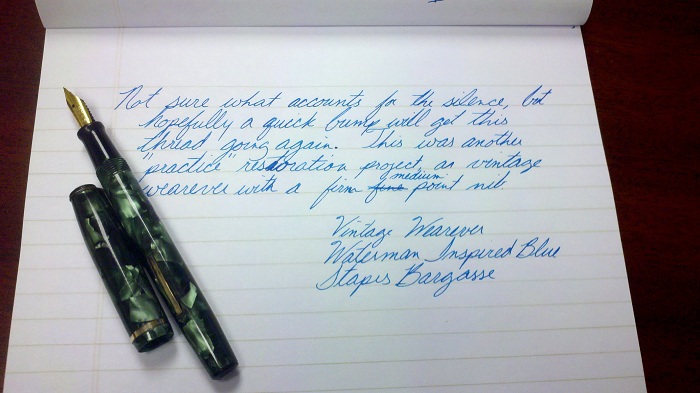 Not sure what accounts for the silence, but
hopefully a quick bump will get this
thread going again. This was another
"practice" restoration project, an vintage
medium
wearever with a firm fine point nib
Vintage Wearever
Waterman Inspired Blue
Stapes Bargasse